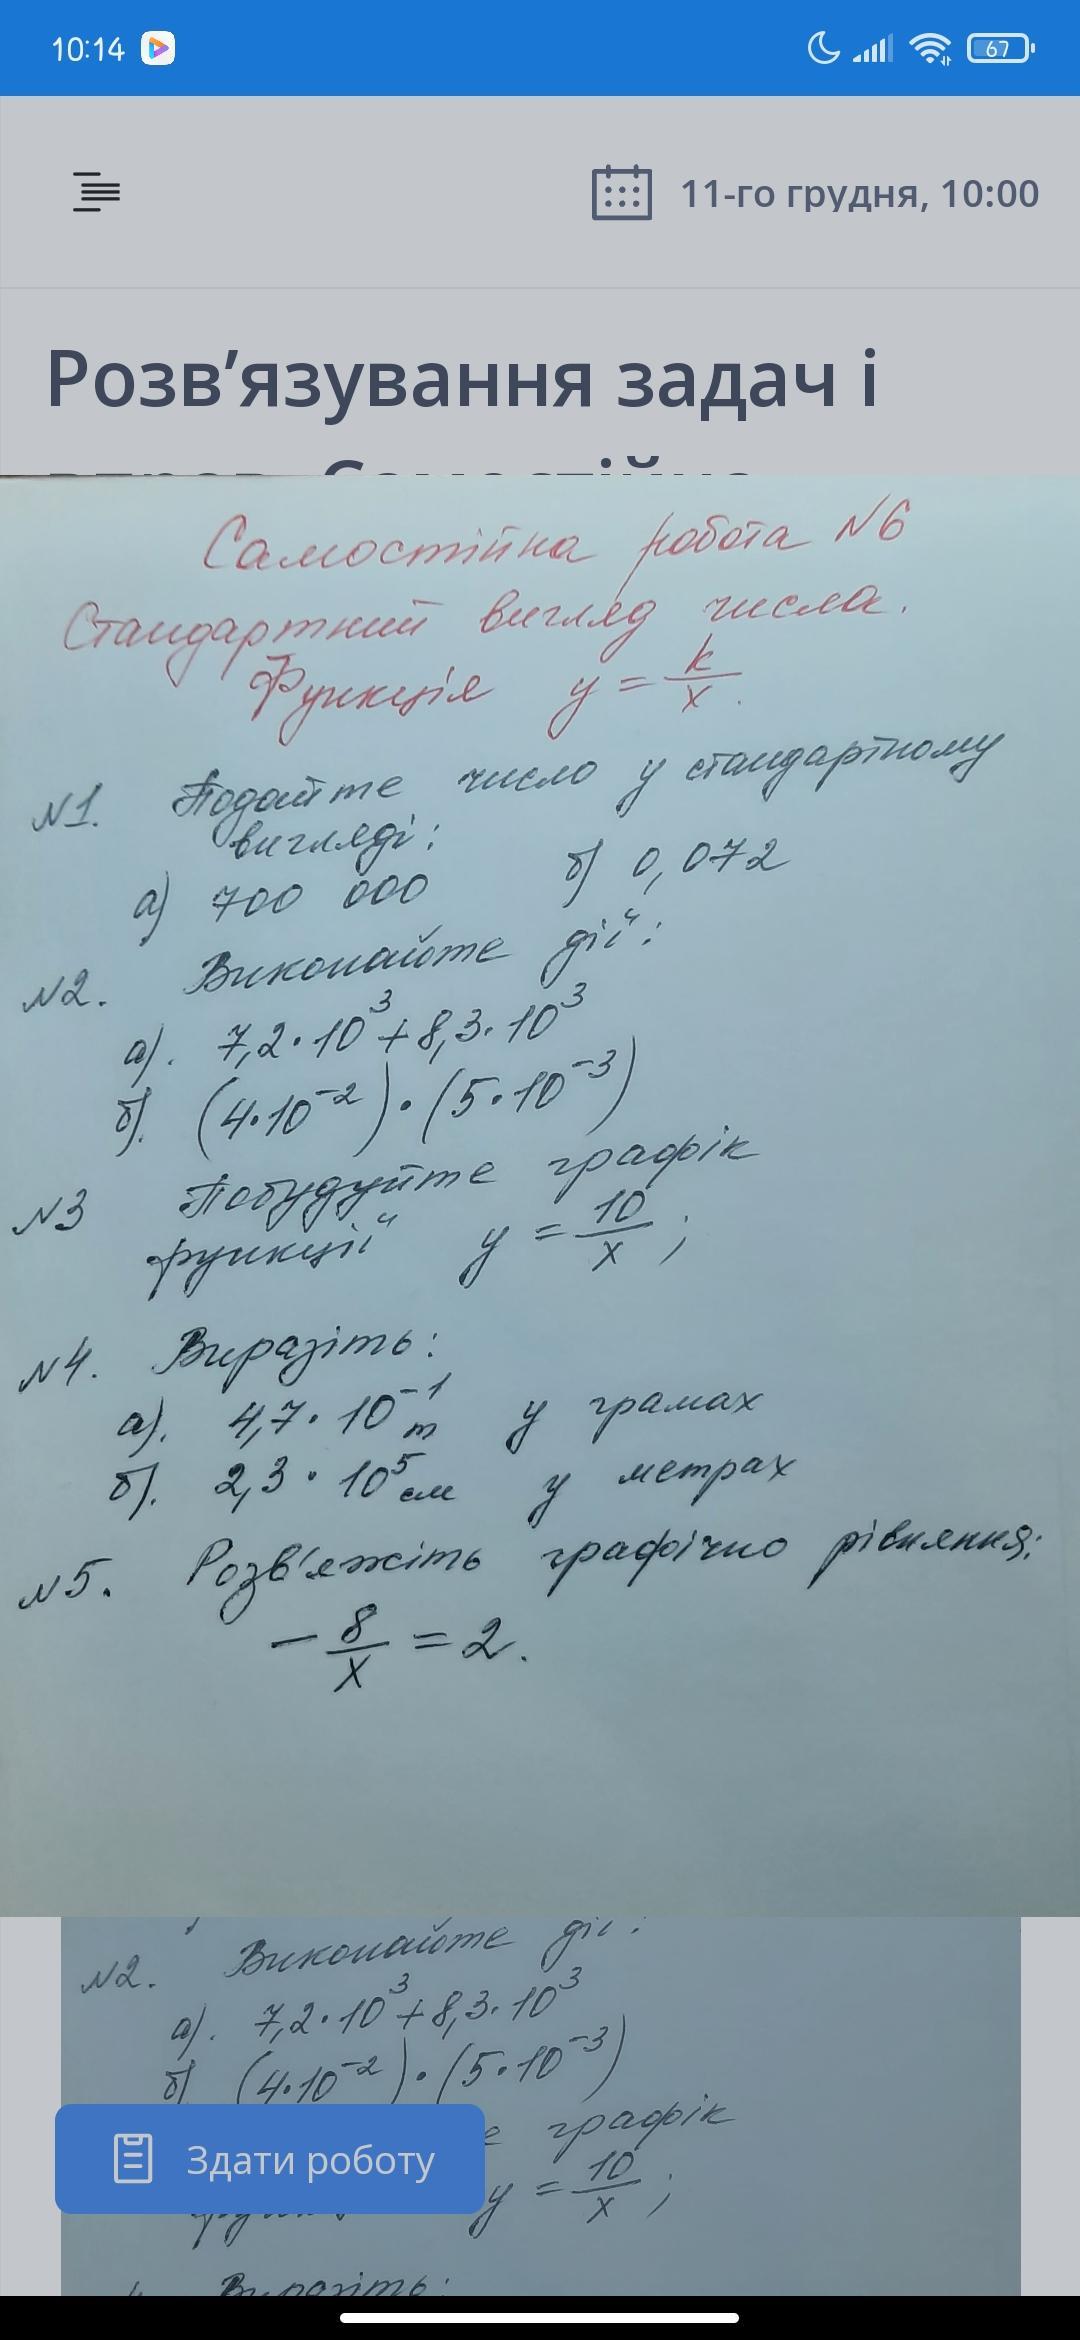 10:14
67
11-го грудня, 10:00
Розв’язування задач і
Самостійна робота №6
Стандартний вигляд числа.
Функція y = k/x.
№1. Подайте число у стандартному
вигляді:
а) 700 000 б) 0,072
№2. Виконайте дії:
а). 7,2·10³+8,3·10³
б). (4·10⁻²)·(5·10⁻³)
№3 Побудуйте графік
функції y = 10/x;
№4. Виразіть:
а). 4,7·10⁻¹ т у грамах
б). 2,3·10⁵ см у метрах
№5. Розв'яжіть графічно рівняння:
− 8/x = 2.
№2. Виконайте дії:
а). 7,2·10³+8,3·10³
б) (4·10⁻²)·(5·10⁻³)
е графік
Здати роботу
y = 10/x;
Виразіть: